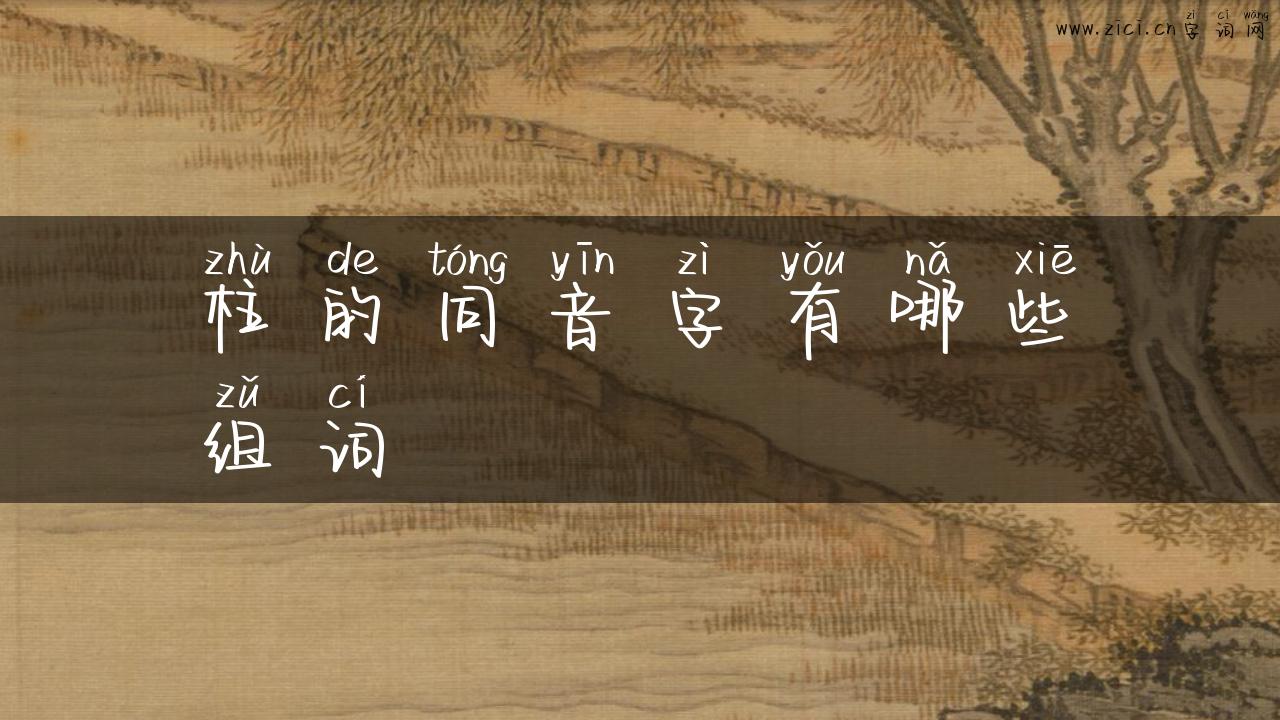 zì cí wǎng
www.zici.cn字词网
zhù de tóng yīn zì yǒu nǎ xiē
柱的同音字有哪些
zǔ cí
组词